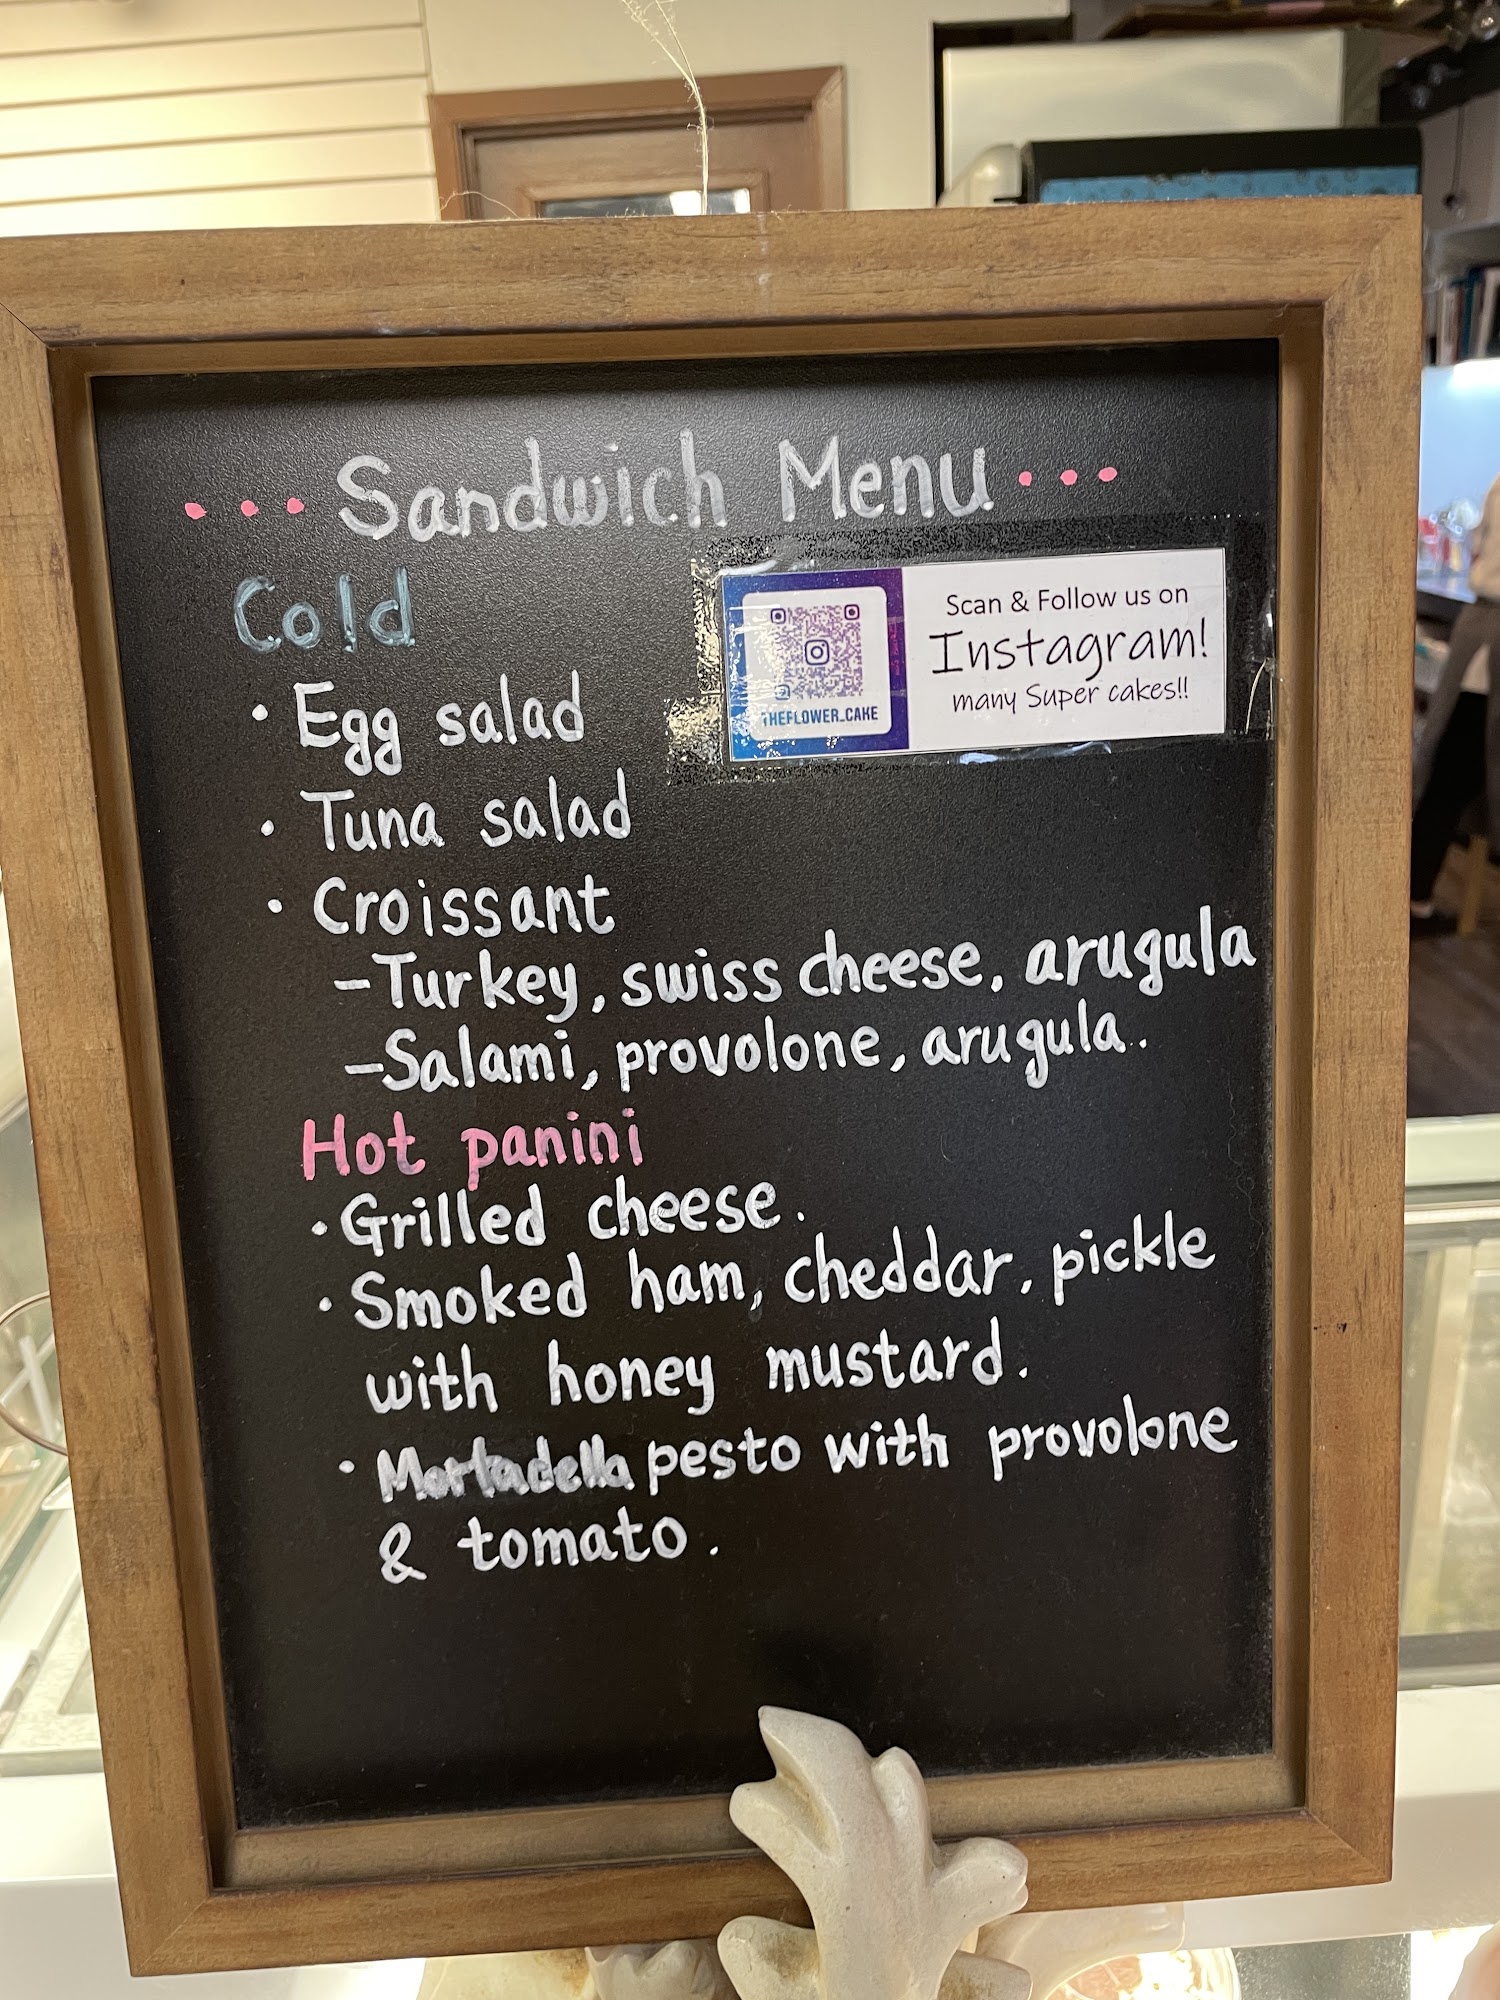 Sandwich Menu
Cold
Scan & Follow us on
Instagram!
many Super cakes!!
THEFLOWER_CAKE
• Egg salad
• Tuna salad
• Croissant
-Turkey, swiss cheese, arugula
-Salami, provolone, arugula.
Hot panini
• Grilled cheese.
• Smoked ham, cheddar, pickle
with honey mustard.
• Mortadella pesto with provolone
& tomato.